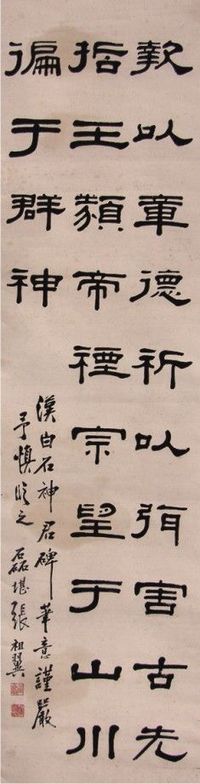 報以章德祈以弭害古先
哲王類帝禋宗望于山川
徧于群神
漢白石神君碑筆意謹嚴
予慎臨之 磊堪張祖翼